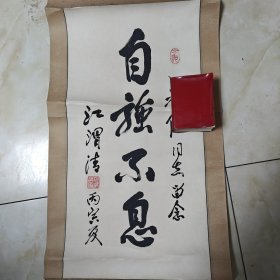 自強不息
同志留念
江渭清
丙寅夏